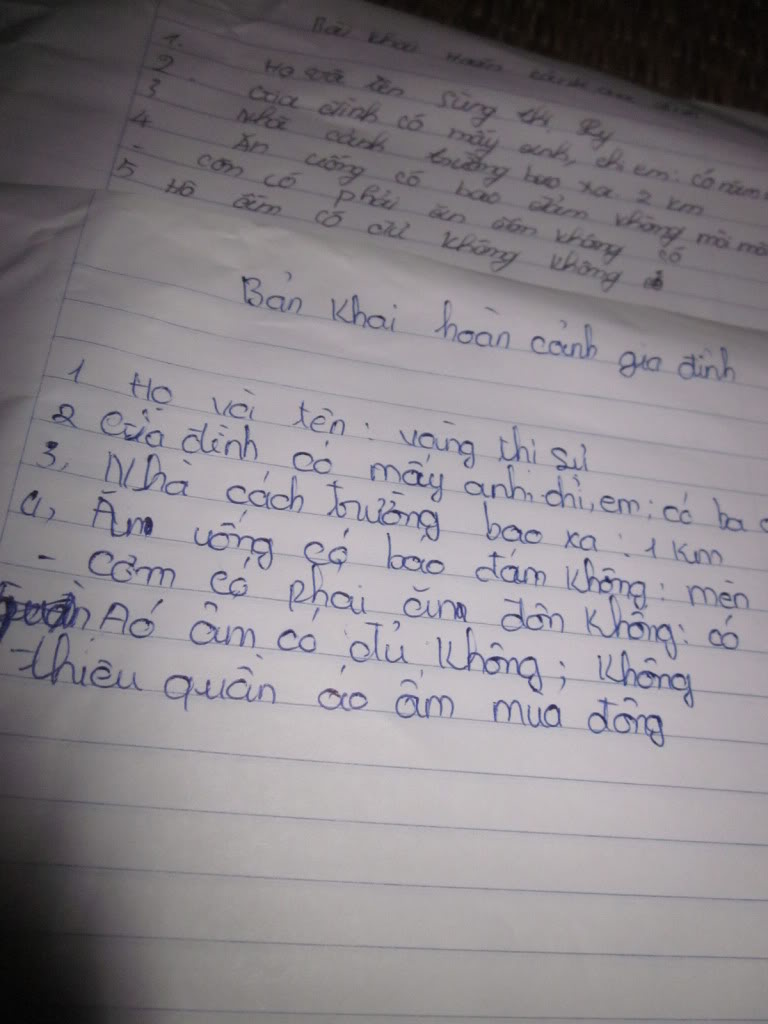 1. Họ và tên Sùng thị Ry
2. Của đình có mấy anh, chị em: có năm
3 Nhà cánh trường bao xa 2 km
4 Ăn uống có bao đảm không mòi mò
- cơn có phải ăn đôn không có
5 Hô ấm có đủ không không
Bản khai hoàn cảnh gia đình
1 Họ vài tên: vàng thi sư
2 Của đình có mấy anh, chị, em: có ba
3, Nhà cách trường bao xa: 1 km
4, Ăm uống có bao đám không: mèn
- cơm có phại ăm đôn không: có
Aó âm có đủ không; không
- thiêu quần áo ấm mua đông